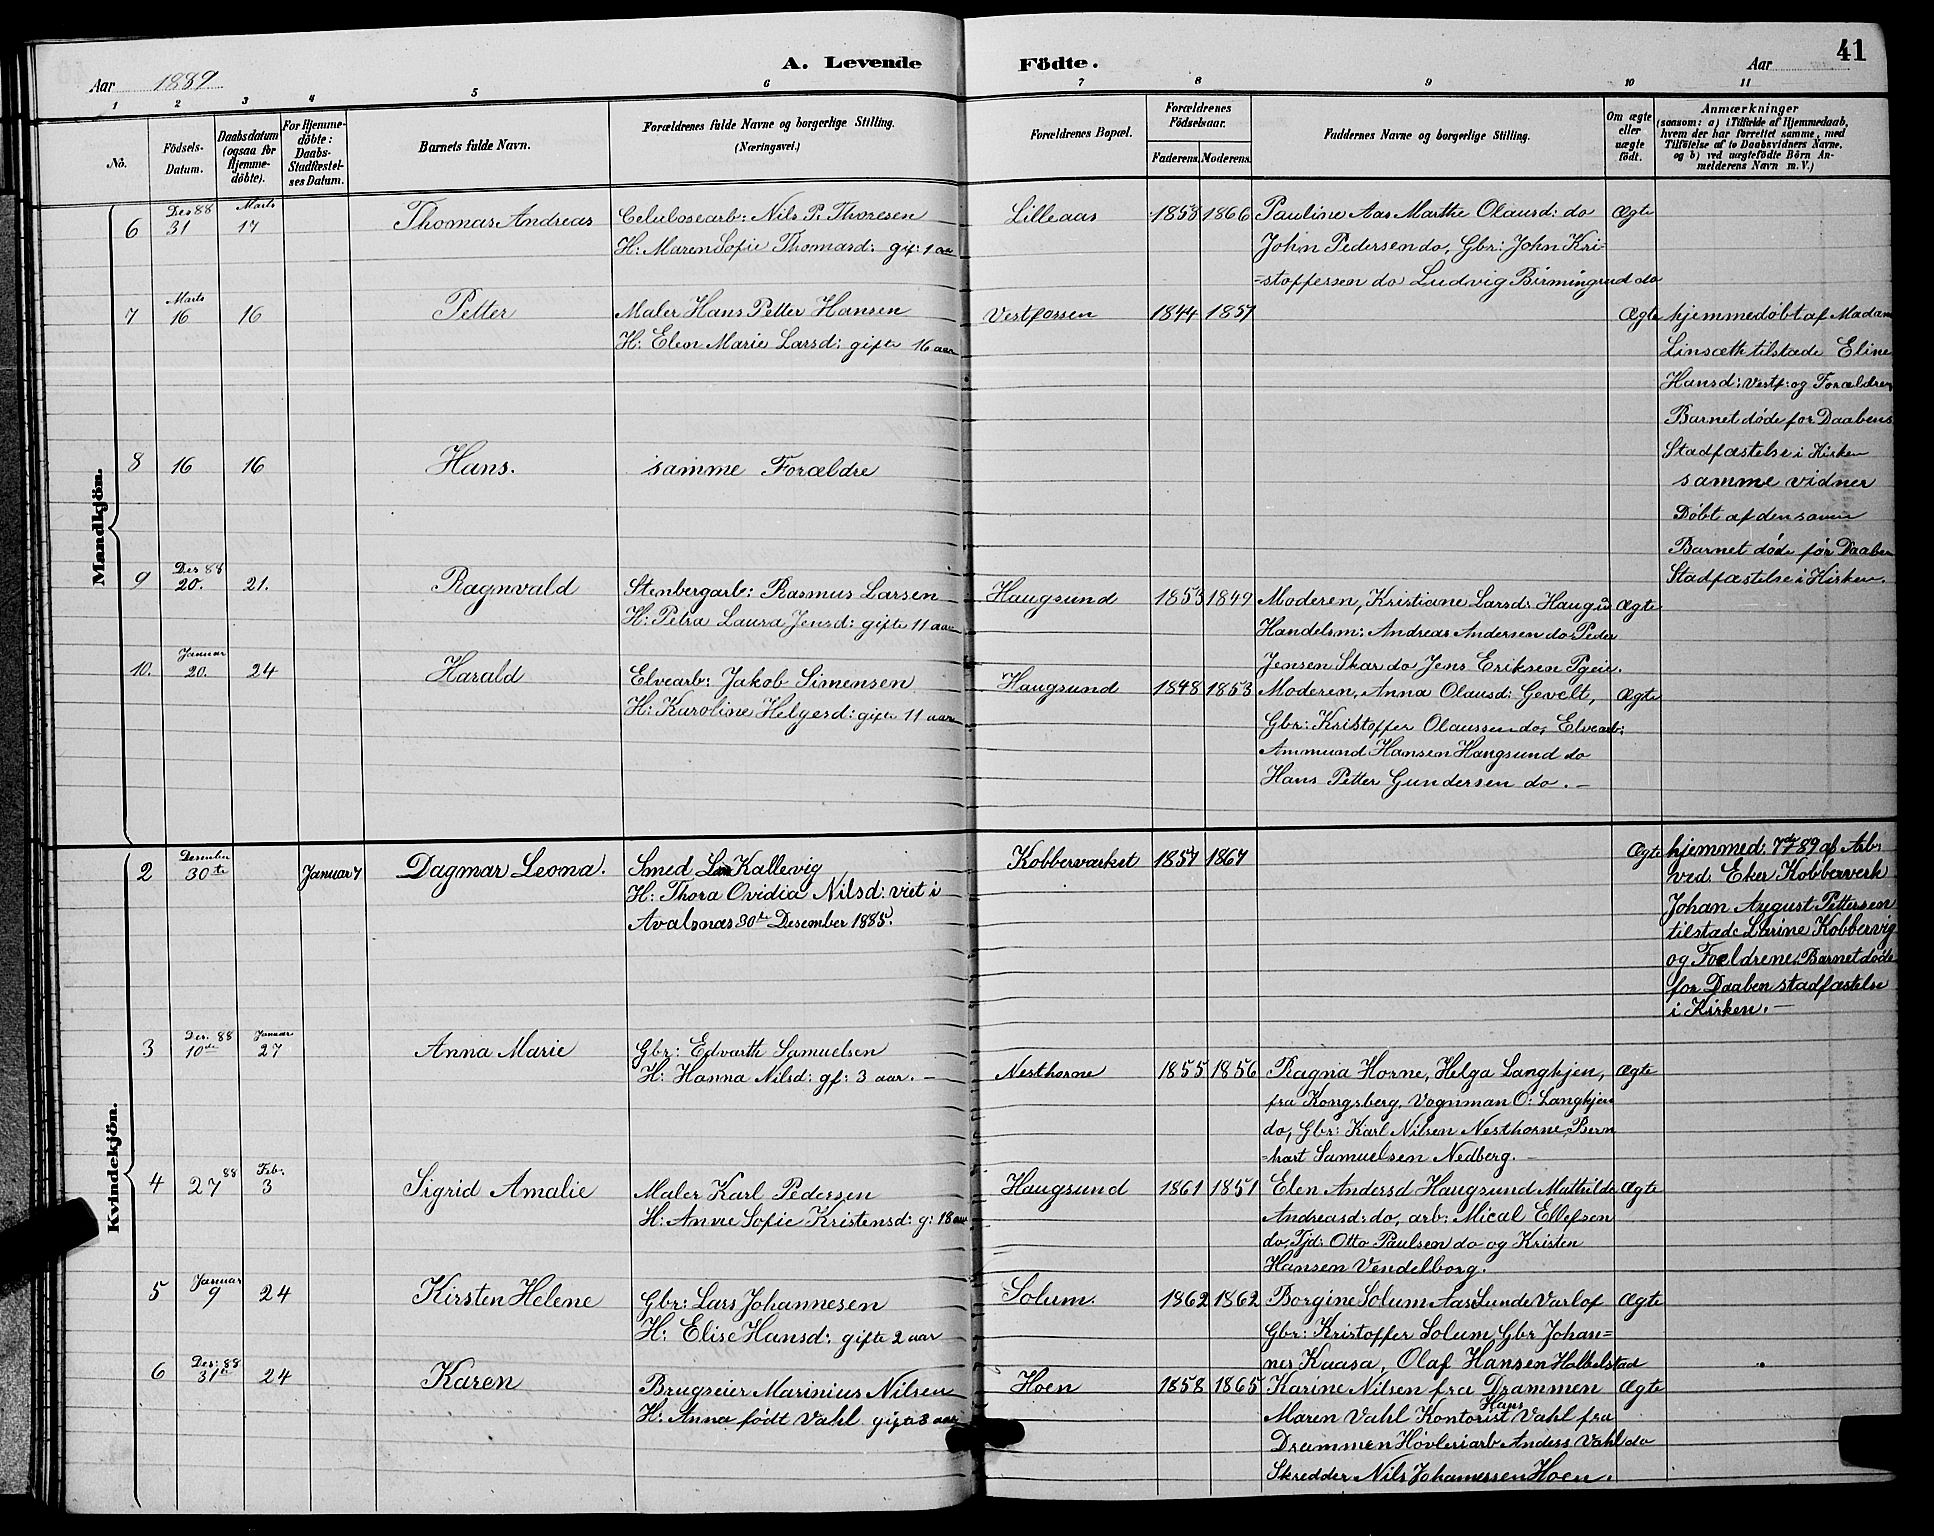 Aar 1889
A. Levende Födte.
Aar
41
1 2 3 4 5 6 7 8 9 10 11
No.
Födsels-Datum.
Daabsdatum (ogsaa for Hjemme-döbte).
For Hjemme-döbte: Daabs-Stadfæstel-ses Datum.
Barnets fulde Navn.
Forældrenes fulde Navne og borgerlige Stilling.
(Næringsvei.)
Forældrenes Bopæl.
Forældrenes Födselsaar.
Faderens. Moderens.
Faddernes Navne og borgerlige Stilling.
Om ægte eller uægte födt.
Anmærkninger
(saasom: a) i Tilfælde af Hjemmedaab,
hvem der har forrettet samme, med
Tilföielse af to Daabsvidners Navne,
og b) ved uægtefödte Börn An-
melderens Navn m. V.)
Mandkjön.
6 Des 88 31 Marts 17 Thomas Andreas
Celulosearb: Nils P. Thoresen
H: Maren Sofie Thomasd: gif: 1 aar
Lilleaas 1858 1866
Pauline Aas Marthe Olausd: do
John Pedersen do, Gbr: John Kri=
=stoffersen do Ludvig Birmingrud do
Ægte
7 Marts 16 16 Petter
Maler Hans Petter Hansen
H: Elen Marie Larsd: gifte 16 aar
Vestfossen 1844 1851
Ægte
hjemmedøbt af Madam
Linsæth tilstæde Eline
Hansd: Vestf: og Forældren
Barnet døde for Daabens
Stadfæstelse i Kirken
8 16 16 Hans.
samme Forældre
samme vidner
Døbt af den samme
Barnet døde før Daaben
Stadfæstelse i Kirken.
9 Des 88 20. 21. Ragnvald
Stenbergarb: Rasmus Larsen
H: Petra Laura Jensd: gifte 11 aar
Haugsund 1853 1849
Moderen, Kristiane Larsd: Haugsu
Handelsm: Andreas Andersen do Peder
Jensen Skar do Jens Eriksen
Ægte
10. Januar 20. 24 Harald
Elvearb: Jakob Simensen
H: Karoline Helgesd: gifte 11 aar
Haugsund 1848 1853
Moderen, Anna Olausd: Gevelt,
Gbr: Kristoffer Olaussen do, Elvearb:
Ammund Hansen Haugsund do
Hans Petter Gundersen do. —
Ægte
Kvindekjön.
2 Desember 30te Januar 7 Dagmar Leona.
Smed Kallevig
H: Thora Ovidia Nilsd: viet i
Avalsnæs 30te Desember 1885.
Kobberværket 1857 1867
Ægte
hjemmed. 89 af Arb:
ved Eker Kobberverk
Johan August Pettersen
tilstæde Larine Kobbervig
og Foreldrene. Barnet døde
for Daaben stadfæstelse
i Kirken. —
3 Des. 88 10de Januar 27 Anna Marie
Gbr: Edvarth Samuelsen
H: Hanna Nilsd: gf: 3 aar. —
Nesthorne 1855 1856
Ragna Horne, Helga Langkjen,
fra Kongsberg, Vognman O: Langkjen
do, Gbr: Karl Nilsen Nesthorne, Bern
=hart Samuelsen Nedberg. —
Ægte
4 27 88 Feb. 3 Sigrid Amalie
Maler Karl Pedersen
H: Anne Sofie Kristensd: g: 18 aar
Haugsund 1861 1851
Elen Andersd Haugsund Mathilde
Andreasd: do, arb: Mical Ellefsen
do, Tjd: Otto Paulsen do og Kristen
Hansen Vendelborg.
Ægte
5 Januar 9 24 Kirsten Helene
Gbr: Lars Johannesen
H: Elise Hansd: gifte 2 aar
Solum. 1862 1862
Borgine Solum Aas Lunde Varlof
Gbr: Kristoffer Solum Gbr Johan=
nes Kaasa, Olaf Hansen Halbelstad
Ægte
6 Des: 88 31te 24 Karen
Brugseier Marinius Nilsen
H: Anna født Vahl gifte 3 aar
Hoen 1858 1865
Karine Nilsen fra Drammen
Maren Vahl Kontorist Hans Vahl fra
Drammen Høvleriarb Anders Vahl do
Skredder Nils Johannessen Hoen.
Ægte